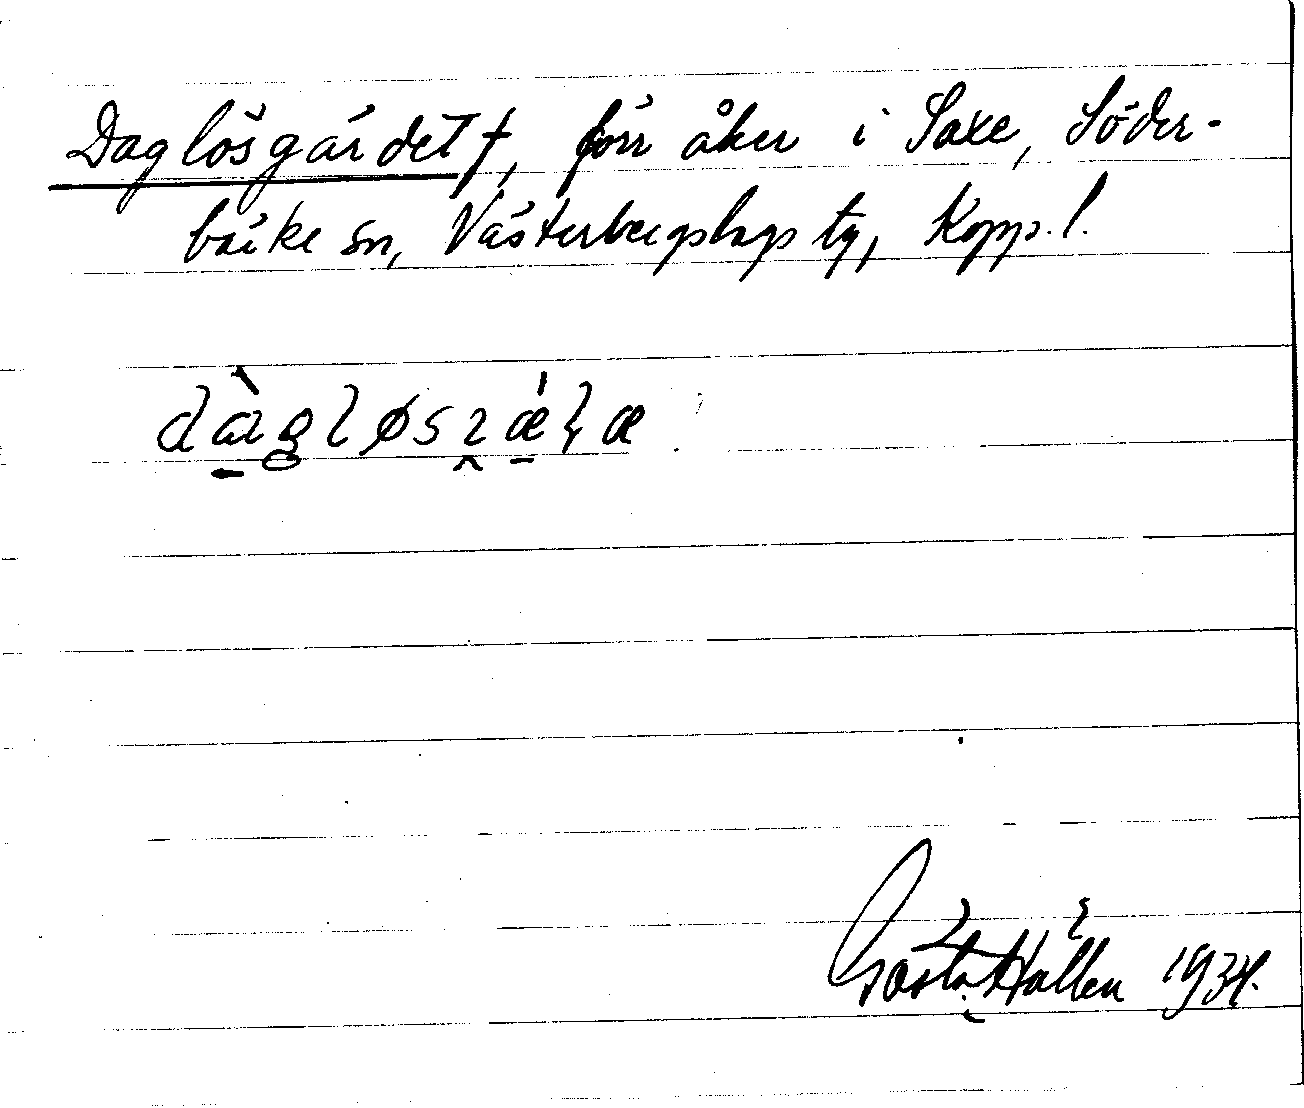 Daglösgärdet †, förr åker i Saxe, Söder-
bärke sn, Västerbergslags tg, Kopp. l.
Gösta Hallén 1934.